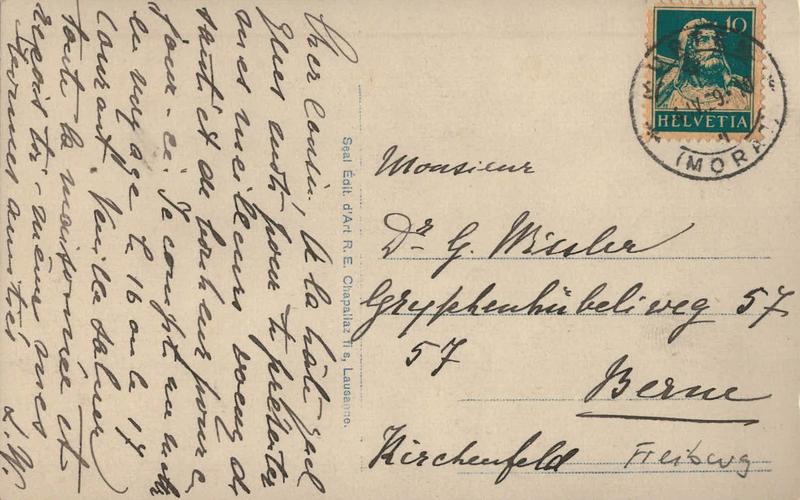 Cher cousin, A la hâte quel
ques mots pour te présenter
mes meilleurs voeux de
santé et de bonheur pour ce
jour-ci. Je compte
le voyage le 16 ou le 17
courant. Veuille saluer
toute la maisonnée et
reçois toi-même mes
bonnes amitiés
Seal Édit. d'Art R. E. Chapallaz fils, Lausanne.
10
HELVETIA
(MORAT)
Monsieur
Dr G. Wissler
Gryphenhübeliweg 57
57
Berne
Kirchenfeld Freiburg